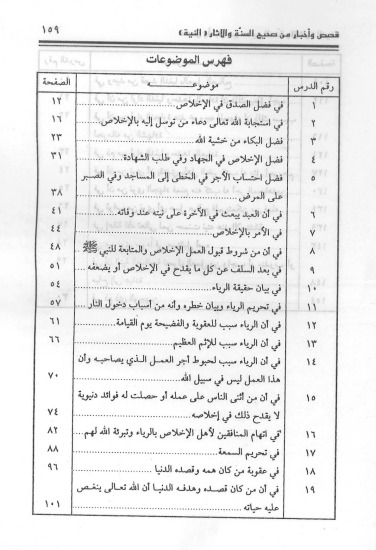 قصص وأخبار من صحيح السنة والآثار (النية) ١٥٩
فهرس الموضوعات
رقم الدرس موضوعه الصفحة
١ في فضل الصدق في الإخلاص ١٢
٢ في استجابة الله تعالى دعاء من توسل إليه بالإخلاص ١٦
٣ فضل البكاء من خشية الله ٢٣
٤ فضل الإخلاص في الجهاد وفي طلب الشهادة ٣١
٥ فضل احتساب الأجر في الخطى إلى المساجد وفي الصبر
على المرض ٣٨
٦ في أن العبد يبعث في الآخرة على نيته عند وفاته ٤١
٧ في الأمر بالإخلاص ٤٤
٨ في أن من شروط قبول العمل الإخلاص والمتابعة للنبي ﷺ ٤٨
٩ في بعد السلف عن كل ما يقدح في الإخلاص أو يضعفه ٥١
١٠ في بيان حقيقة الرياء ٥٤
١١ في تحريم الرياء وبيان خطره وأنه من أسباب دخول النار ٥٧
١٢ في أن الرياء سبب للعقوبة والفضيحة يوم القيامة ٦١
١٣ في أن الرياء سبب للإثم العظيم ٦٦
١٤ في أن الرياء سبب لحبوط أجر العمل الذي يصاحبه وأن
هذا العمل ليس في سبيل الله ٧٠
١٥ في أن من أثنى الناس على عمله أو حصلت له فوائد دنيوية
لا يقدح ذلك في إخلاصه ٧٤
١٦ في اتهام المنافقين لأهل الإخلاص بالرياء وتبرئة الله لهم ٨٢
١٧ في تحريم السمعة ٨٨
١٨ في عقوبة من كان همه وقصده الدنيا ٩٦
١٩ في أن من كان قصده وهدفه الدنيا أن الله تعالى ينغص
عليه حياته ١٠١